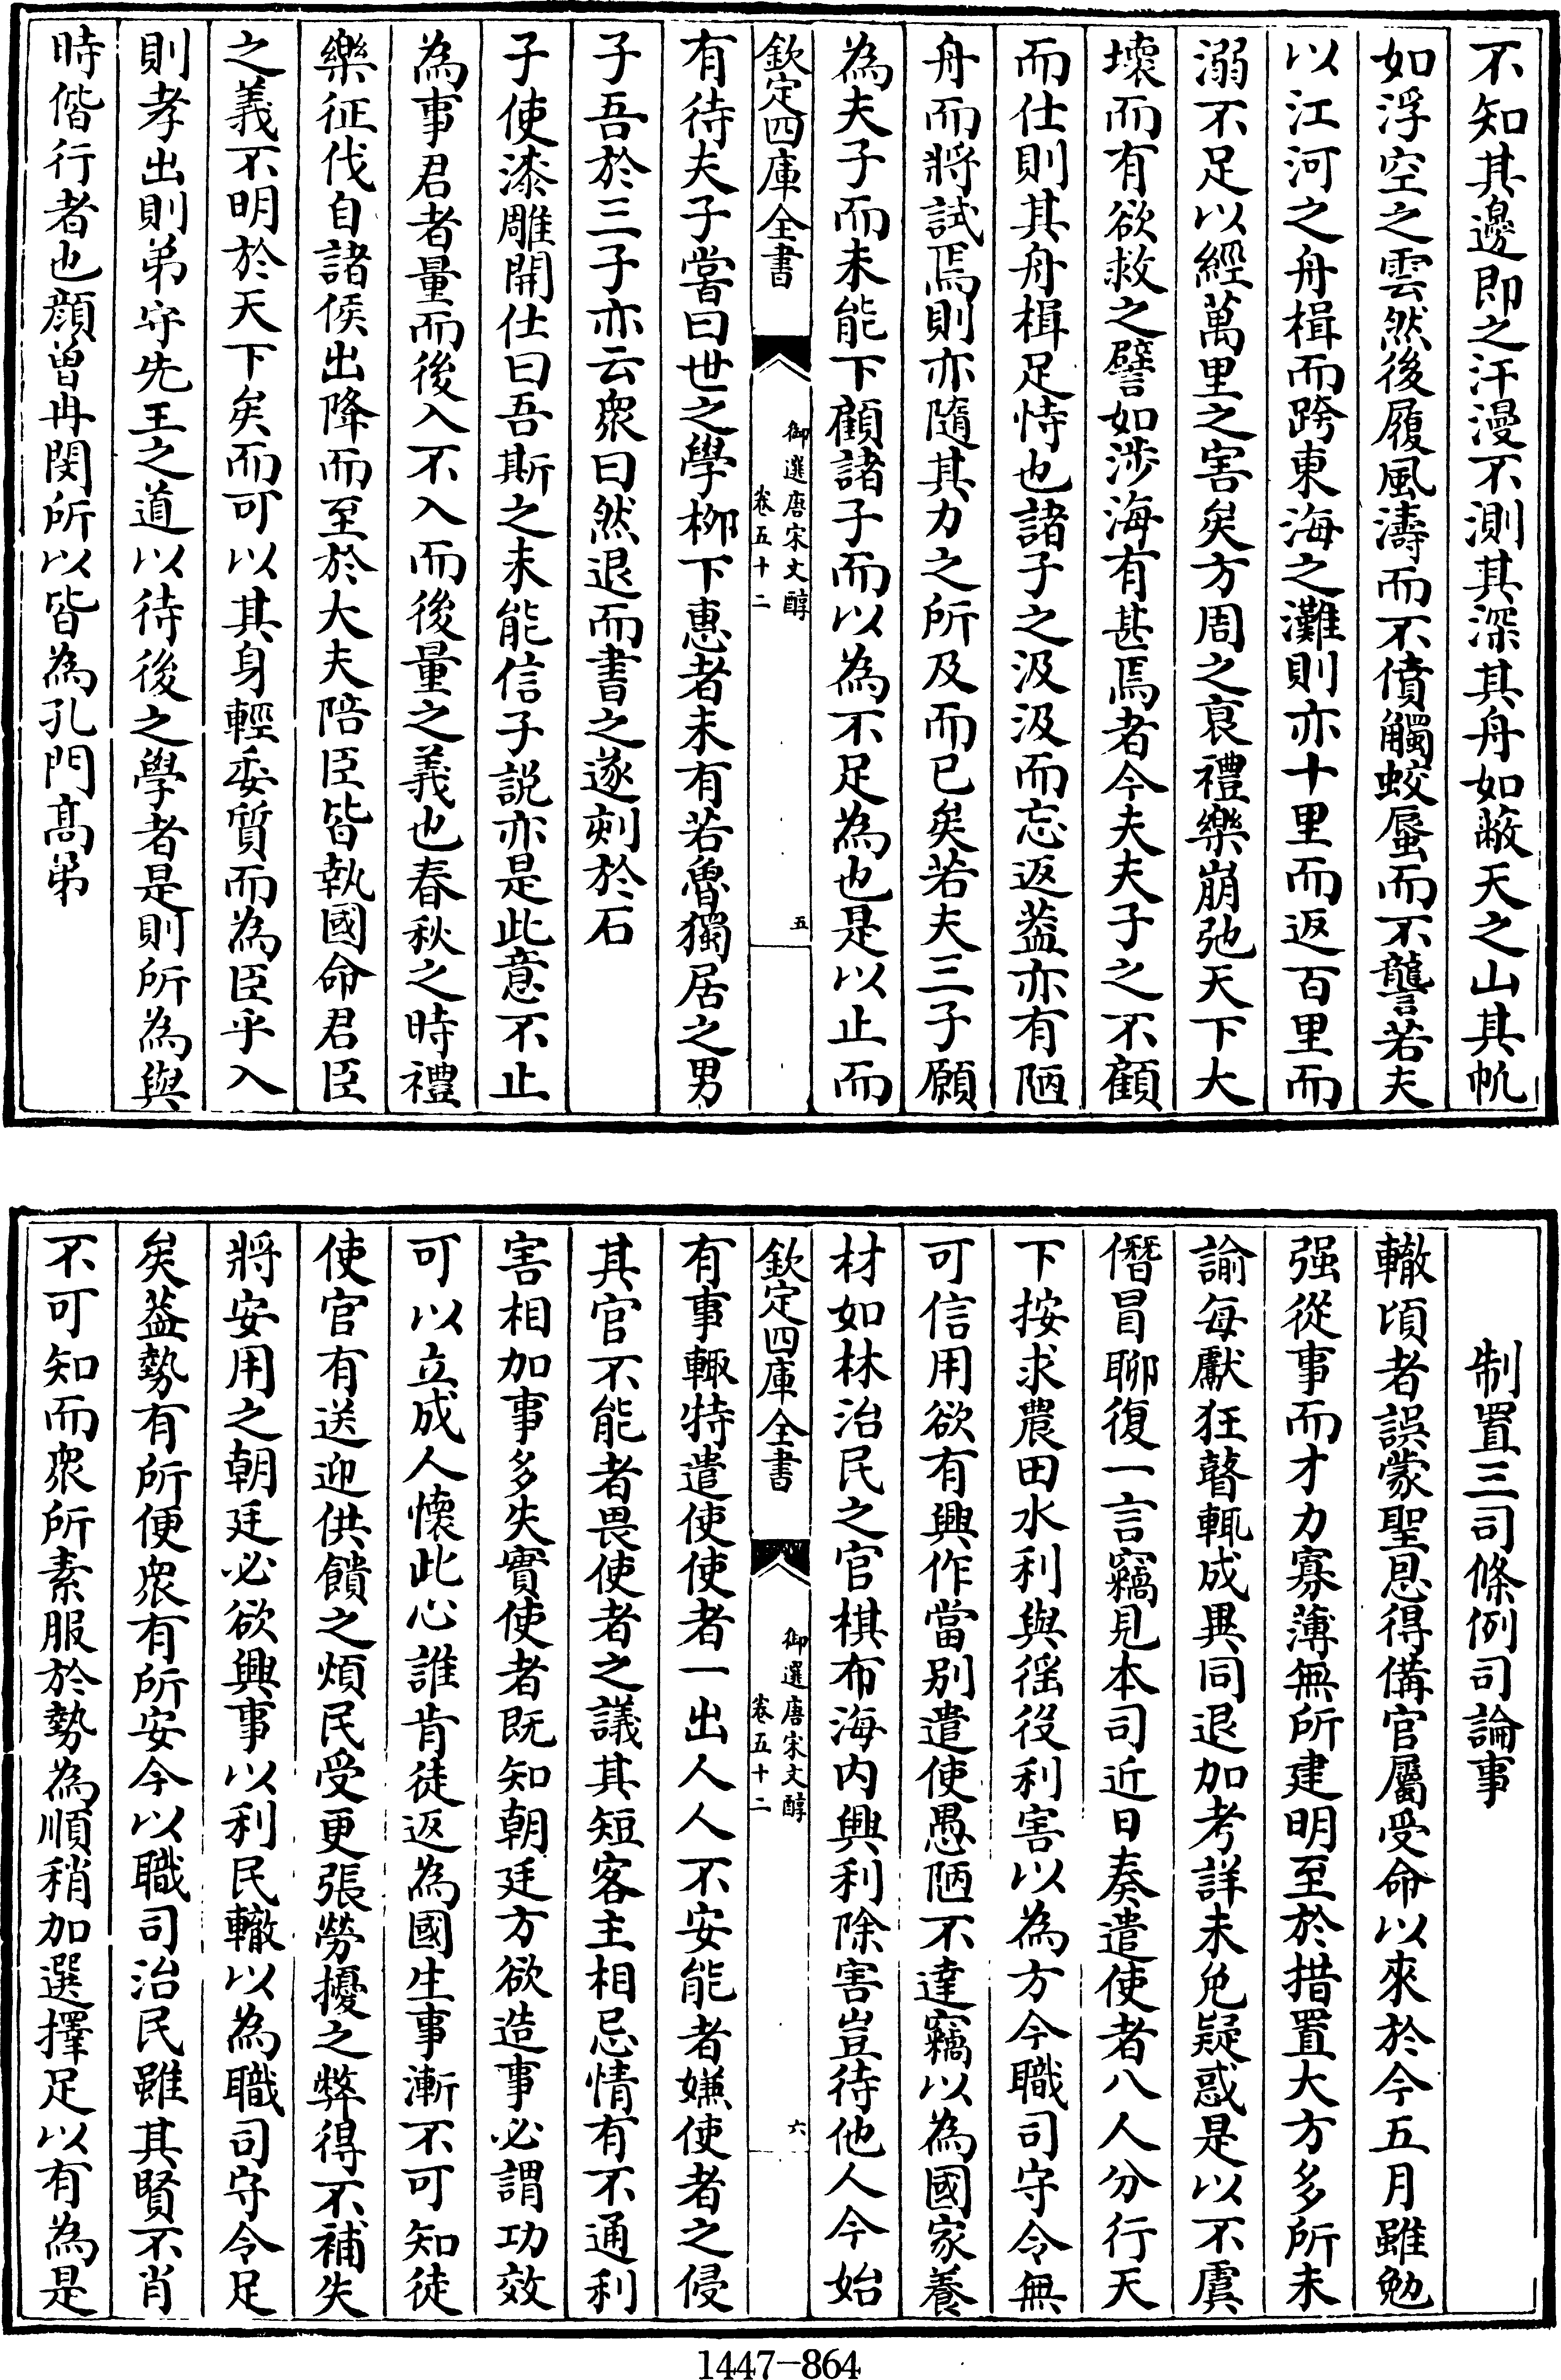 不知其邊即之汗漫不測其深其舟如蔽天之山其帆
如浮空之雲然後履風濤而不僨觸蛟蜃而不讋若夫
以江河之舟楫而跨東海之灘則亦十里而返百里而
溺不足以經萬里之害矣方周之衰禮樂崩弛天下大
壞而有欲救之譬如涉海有甚焉者今夫夫子之不顧
而仕則其舟楫足恃也諸子之汲汲而忘返葢亦有陋
舟而將試焉則亦隨其力之所及而已矣若夫三子願
為夫子而未能下顧諸子而以為不足為也是以止而
欽定四庫全書
御選唐宋文醇
卷五十二
五
有待夫子嘗曰世之學柳下惠者未有若魯獨居之男
子吾於三子亦云衆曰然退而書之遂刻於石
子使漆雕開仕曰吾斯之未能信子說亦是此意不止
為事君者量而後入不入而後量之義也春秋之時禮
樂征伐自諸侯出降而至於大夫陪臣皆執國命君臣
之義不明於天下矣而可以其身輕委質而為臣乎入
則孝出則弟守先王之道以待後之學者是則所為與
時偕行者也顔曾冉閔所以皆為孔門髙弟
制置三司條例司論事
轍頃者誤蒙聖恩得備官屬受命以來於今五月雖勉
强從事而才力寡薄無所建明至於措置大方多所未
諭每獻狂瞽輒成異同退加考詳未免疑惑是以不虞
僭冒聊復一言竊見本司近日奏遣使者八人分行天
下按求農田水利與徭役利害以為方今職司守令無
可信用欲有興作當别遣使愚陋不達竊以為國家養
材如林治民之官棋布海内興利除害豈待他人今始
欽定四庫全書
御選唐宋文醇
卷五十二
六
有事輒特遣使使者一出人人不安能者嫌使者之侵
其官不能者畏使者之議其短客主相忌情有不通利
害相加事多失實使者既知朝廷方欲造事必謂功效
可以立成人懷此心誰肯徒返為國生事漸不可知徒
使官有送迎供饋之煩民受更張勞擾之弊得不補失
將安用之朝廷必欲興事以利民轍以為職司守令足
矣葢勢有所便衆有所安今以職司治民雖其賢不肖
不可知而衆所素服於勢為順稍加選擇足以有為是
1447-864